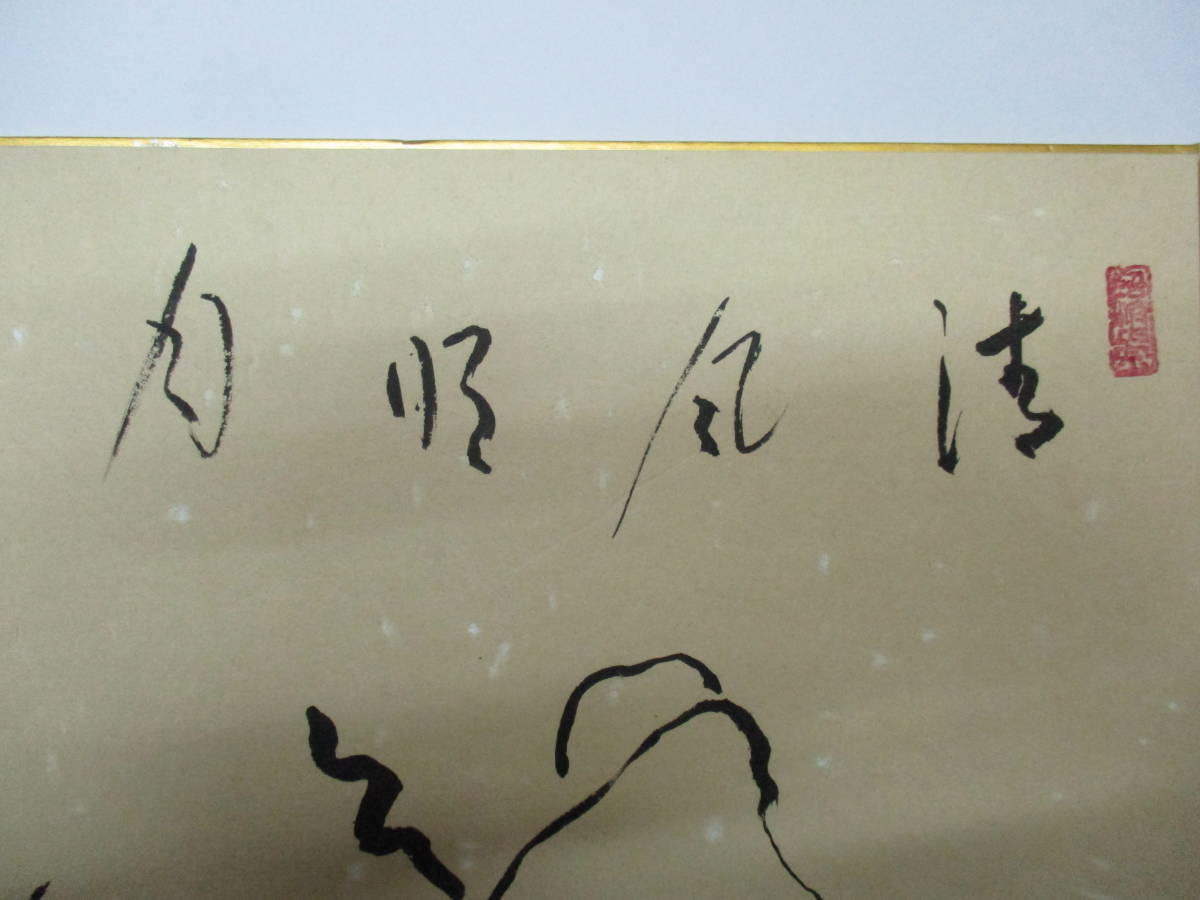 清風明月